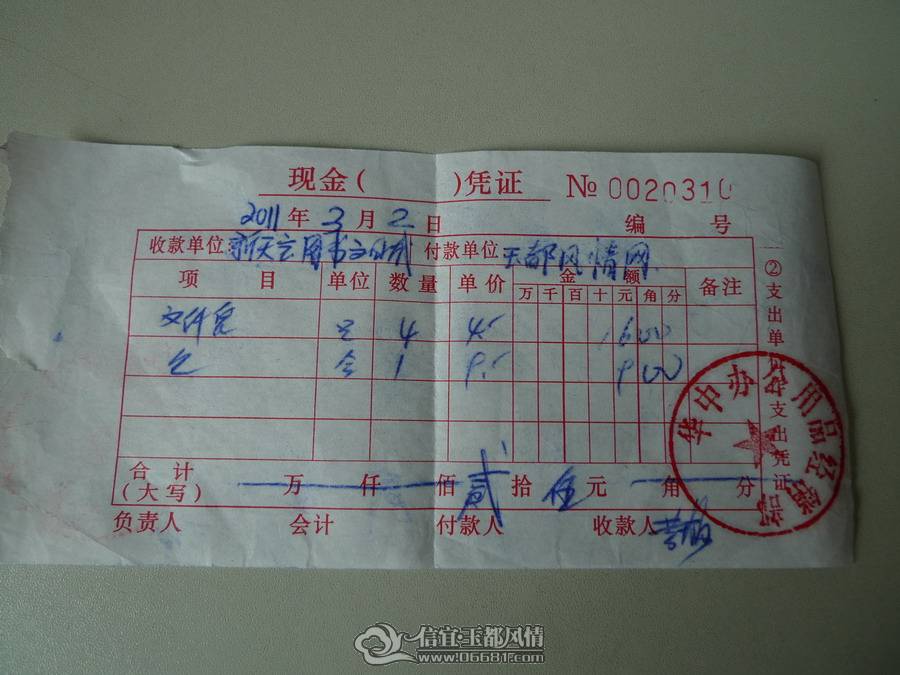 现金( )凭证 № 0020310
2011年3月2日 编 号
收款单位 图书文 付款单位 玉都风情网
项 目 单位 数量 单价 金 额 备注
万 千 百 十 元 角 分
文件 4 4.- 1600
1 9.- 900
合计(大写) 万 仟 佰 贰 拾 伍 元 角 分
负责人 会计 付款人 收款人
②支出单 作支出凭证
华中办公用品经销部
信宜·玉都风情
www.06681.com